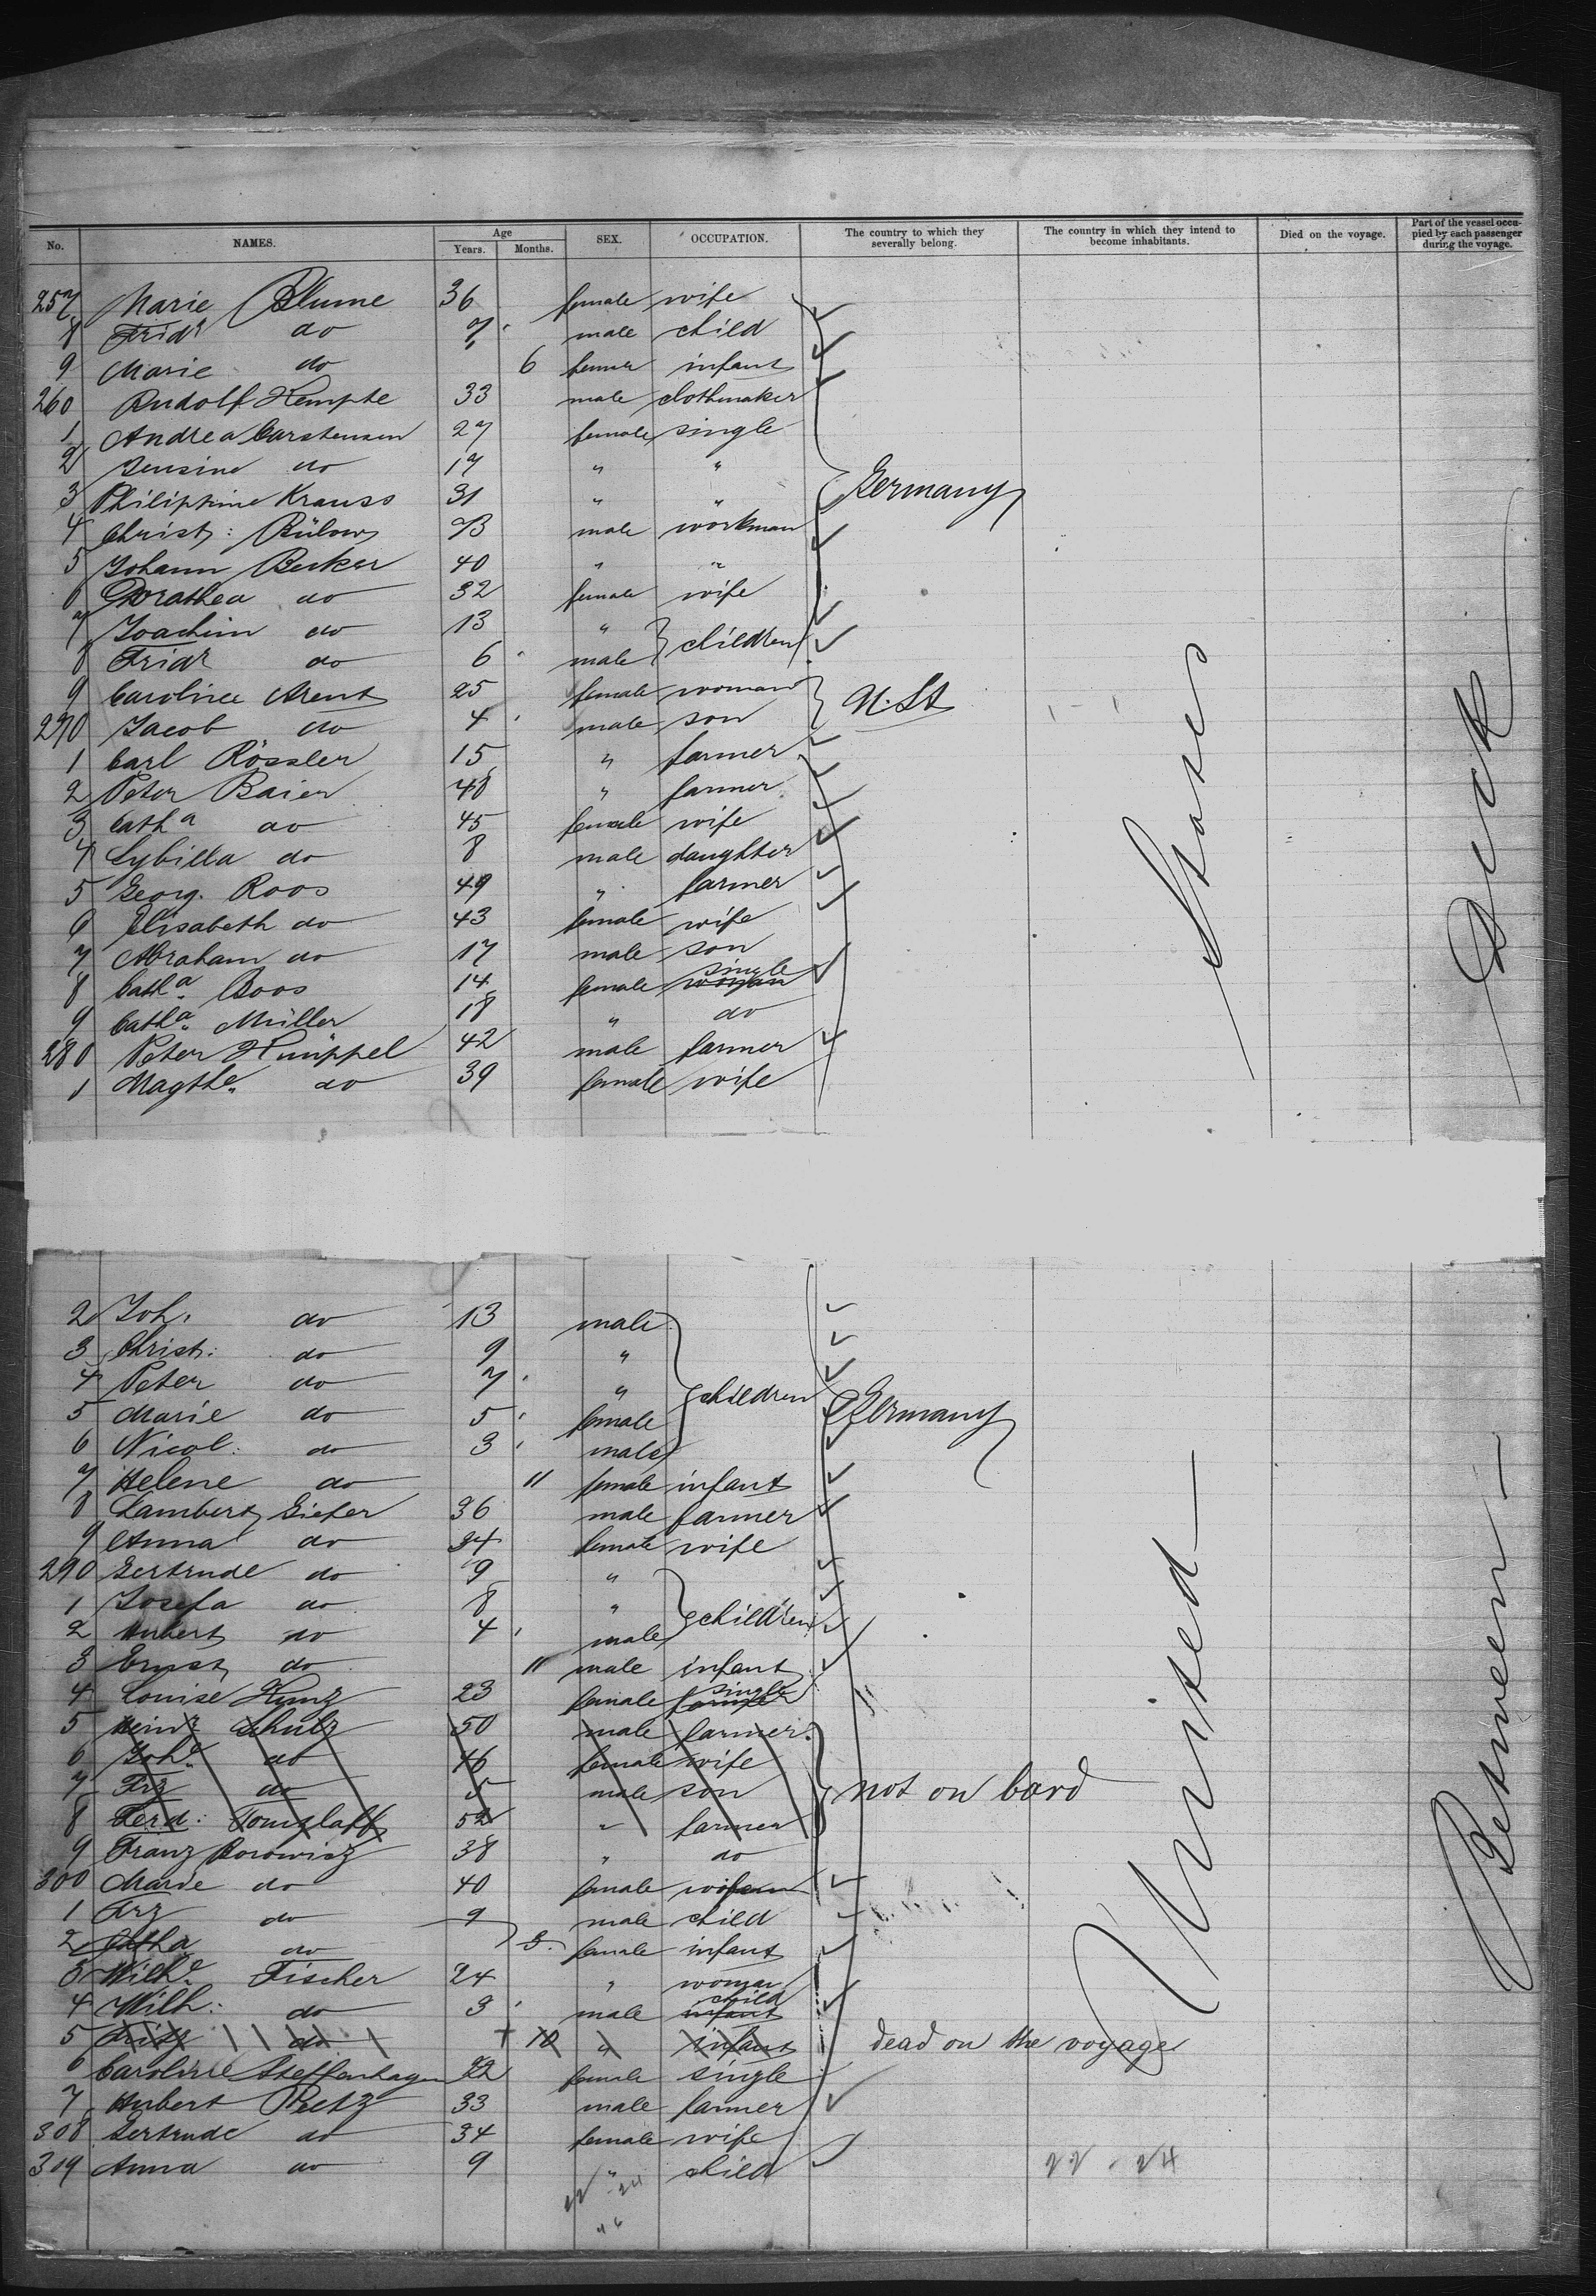 No. NAMES. Age Years. Months. SEX. OCCUPATION. The country to which they severally belong. The country in which they intend to become inhabitants. Died on the voyage. Part of the vessel occupied by each passenger during the voyage.
257 Marie Blume 36 female wife
8 Fridr do 7 male child
9 Marie do 6 infant
260 Rudolf Hempke 33 male clothmaker
1 Andrea Carstensen 27 female single
2 do 17 " "
3 Philippine Krauss 31 " " Germany
4 Christ: Bülow male workman
5 Johann Becker 40 " "
6 Dorathea do 32 female wife
7 Joachim do 13 " children
8 Fridr do 6 male
9 Caroline Arent 25 female woman U. St
270 Jacob do 4 male son
1 Carl Rössler 15 " farmer
2 Peter Baier 48 " farmer
3 Catha do 45 female wife
4 Sybilla do 8 male daughter
5 Georg. Roos 49 " farmer
6 Elisabeth do 43 female wife
7 Abraham do 17 male son
8 Catha Boos 14 female single woman
9 Catha Müller 18 " do
280 Peter Knüppel 42 male farmer
1 Magthe do 39 female wife
2 Joh. do 13 male
3 Christ: do 9 "
4 Peter do 7 " children Germany
5 Marie do 5 female
6 Nicol: do 3 male
7 Helene do 11 female infant
8 Lambert Giefer 36 male farmer
9 Anna do 34 female wife
290 Gertrude do 9 "
1 Josefa do 8 " children
2 Hubert do 4 male
3 Ernst do 11 male infant
4 Louise Kunz 23 female single
5 Heinr Schulz 50 male farmer
6 Johe do 46 female wife
7 Frz do 5 male son not on bord
8 Ferd: Tomzlaff 52 " farmer
9 Franz Borowicz 38 " do
300 Marie do 40 female
1 Frz do 9 male child
2 Catha do female infant
3 Wilhe Fischer 24 " woman
4 Wilh: do 3 male child infant
5 Fritz do † 10 " infant dead on the voyage
6 Caroline Steffenhagen 22 female single
7 Hubert Peetz 33 male farmer
308 Gertrude do 34 female wife
309 Anna do 9 " child
22 - 24
22 - 24
46
United States
Between Deck